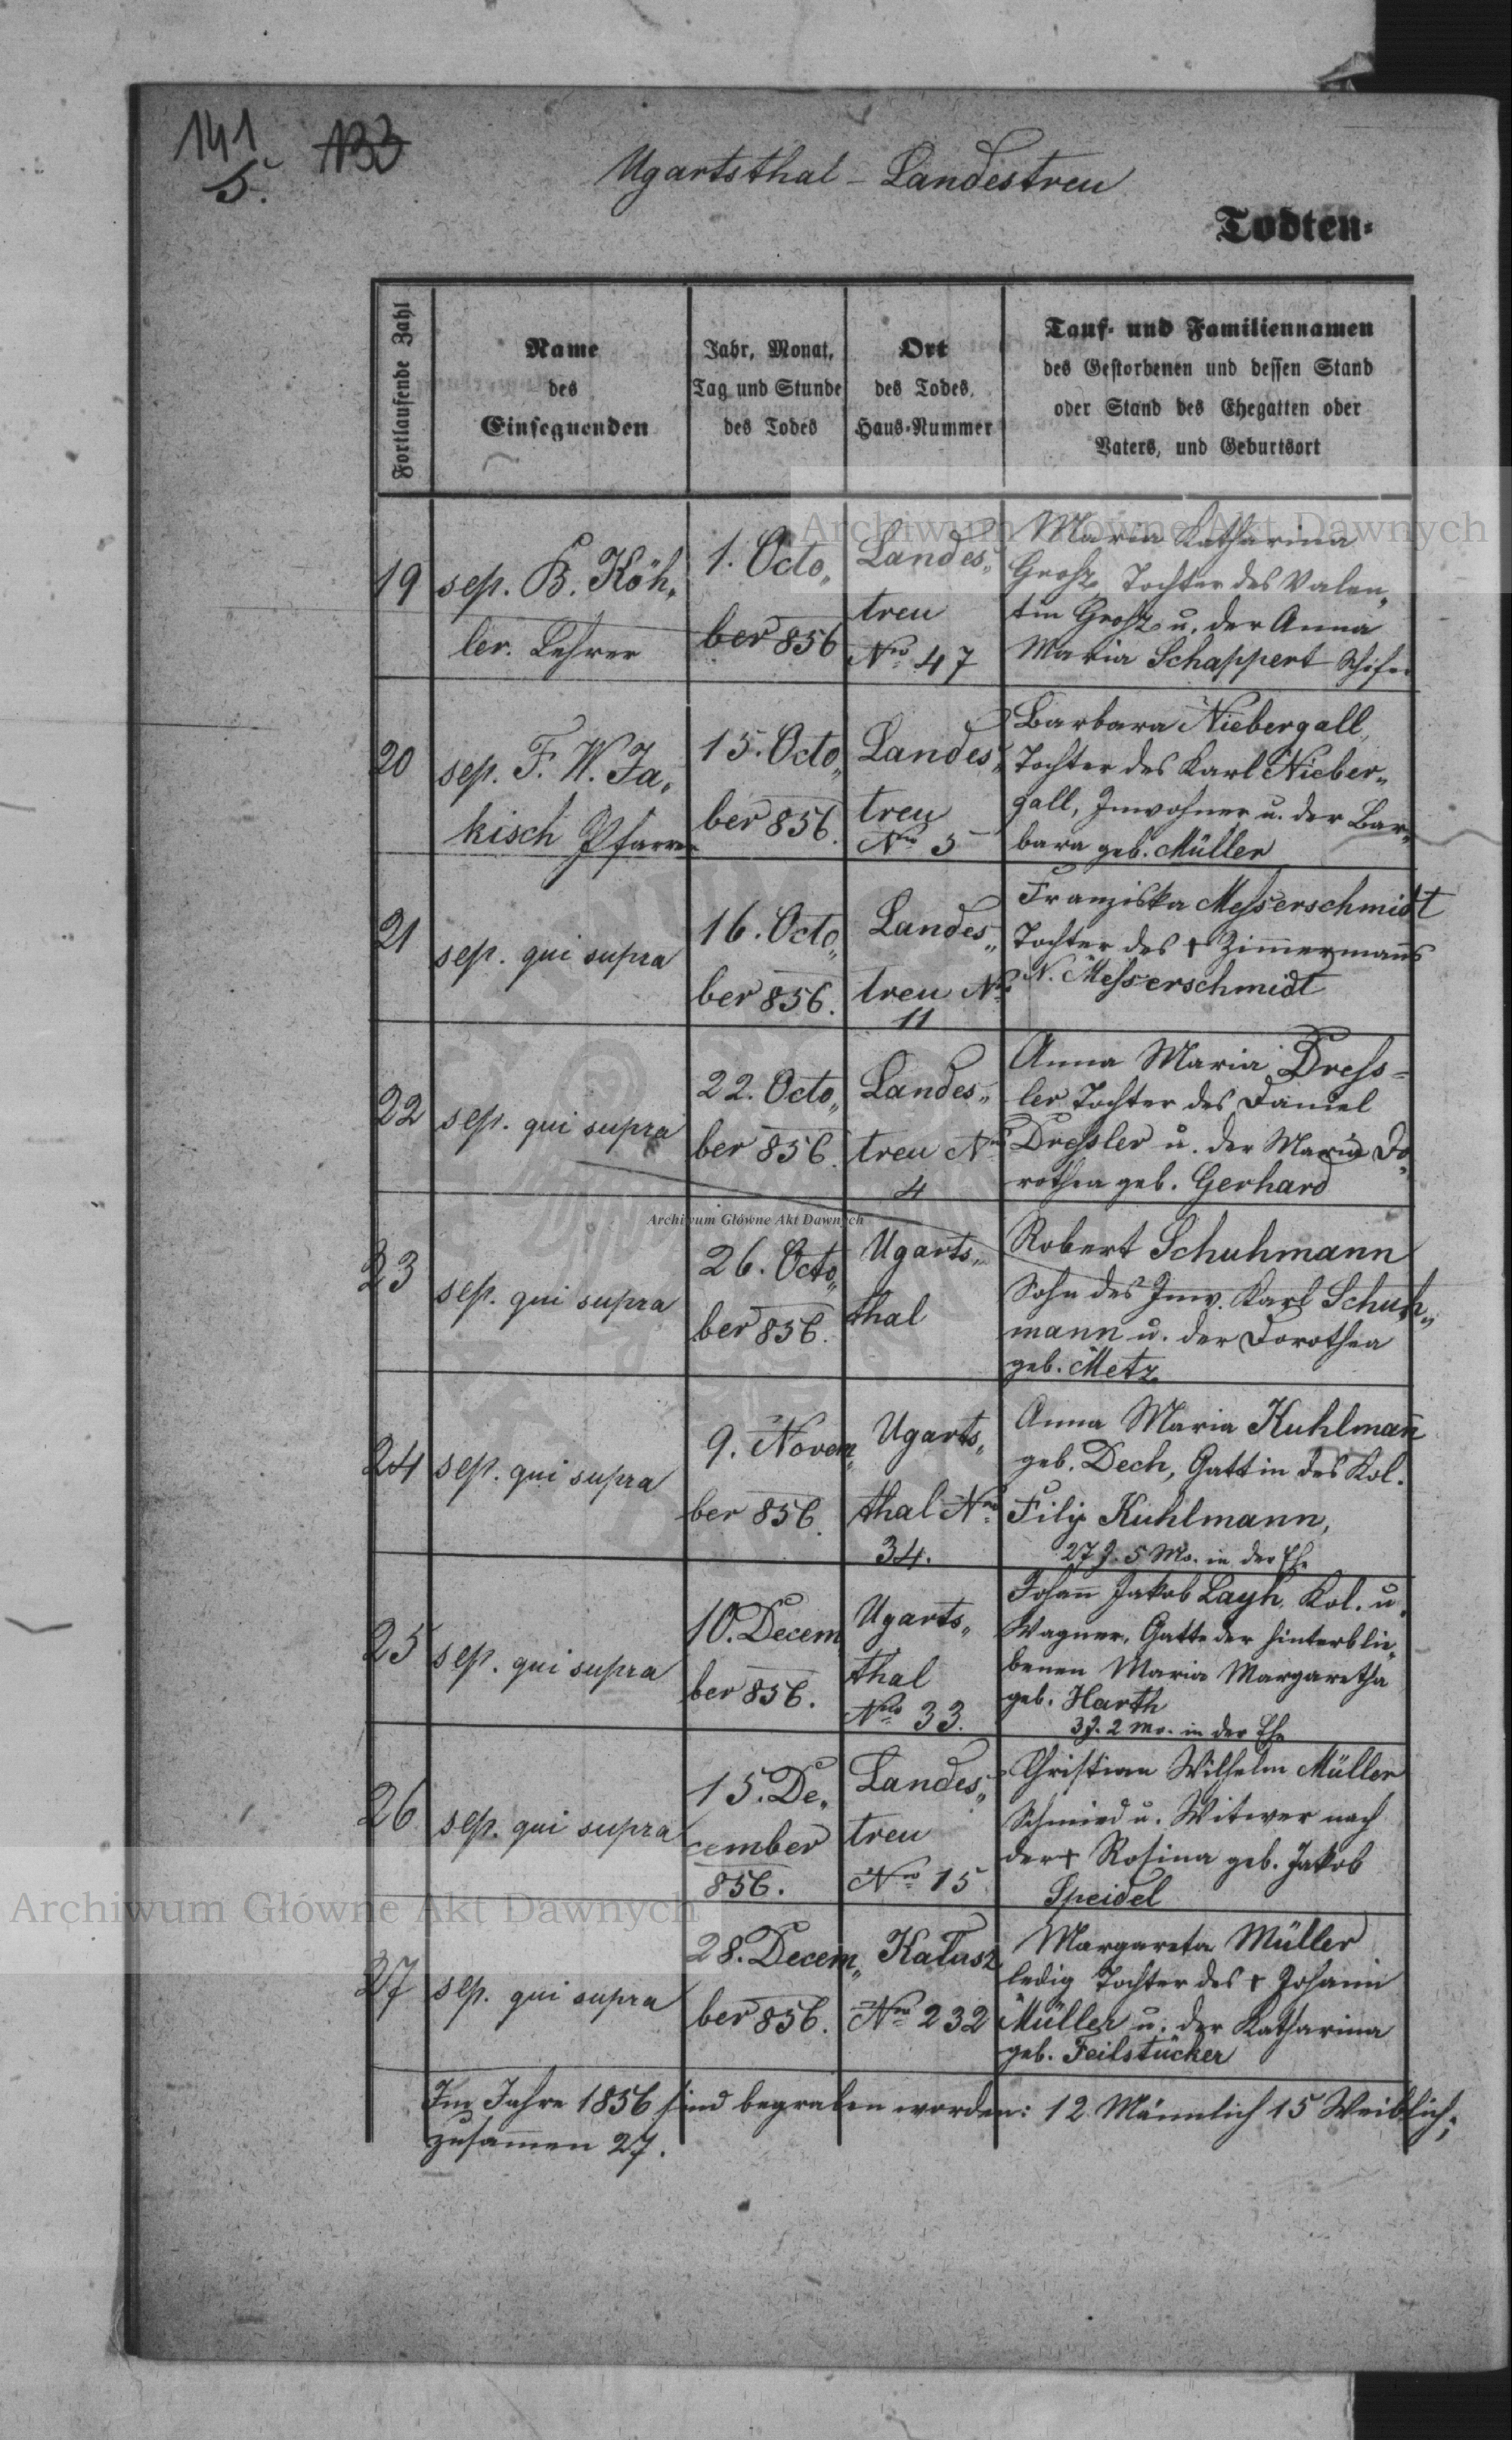 141
5.
133
Ugartsthal - Landestreu
Todten-
Fortlaufende Zahl
Name
des
Einsegnenden
Jahr, Monat,
Tag und Stunde
des Todes
Ort
des Todes,
Haus-Nummer
Tauf- und Familiennamen
des Gestorbenen und dessen Stand
oder Stand des Ehegatten oder
Vaters, und Geburtsort
19
sep. B. Köh„
ler. Lehrer
1. Octo„
ber 856
Landes„
treu
Nro 47
Maria Katharina
Grosz Tochter des Valen„
tin Grosz u. der Anna
Maria Schappert
20
sep. F. W. Ja„
kisch Pfarrer
15. Octo„
ber 856.
Landes„
treu
Nro 5
Barbara Niebergall,
Tochter des Karl Nieber„
gall, Inwohner u. der Bar„
bara geb. Müller
21
sep. qui supra
16. Octo„
ber 856.
Landes„
treu Nro
11
Franziska Messerschmidt
Tochter des + Zimmermanns
N. Messerschmidt
22
sep. qui supra
22. Octo„
ber 856.
Landes„
treu Nro
4
Anna Maria Dress=
ler Tochter des Daniel
Dressler u. der Maria Do„
rothea geb. Gerhard
23
sep. qui supra
26. Octo„
ber 856.
Ugarts„
thal
Robert Schuhmann
Sohn des Inw. Karl Schuh„
mann u. der Dorothea
geb. Metz
24
sep. qui supra
9. Novem„
ber 856.
Ugarts„
thal Nro
34.
Anna Maria Kuhlmañ
geb. Dech, Gattin des Kol.
Filip Kuhlmann,
27 J. 5 Mo. in der Ehe
25
sep. qui supra
10. Decem
ber 856.
Ugarts„
thal
Nro 33.
Johañ Jakob Layh Kol. u.
Wagner, Gatte der hinterblie„
benen Maria Margaretha
geb. Harth
3 J. 2 Mo. in der Ehe
26
sep. qui supra
15. De„
cember
856.
Landes„
treu
Nro 15
Christian Wilhelm Müller
Schmied u. Witwer nach
der + Rosina geb. Jakob
Speidel
27
sep. qui supra
28. Decem„
ber 856.
Kalusz
Nro 232
Margareta Müller
ledig Tochter des + Johann
Müller u. der Katharina
geb. Feilstücker
Im Jahre 1856 sind begraben worden: 12 Männlich 15 Weiblich;
zusammen 27.
Archiwum Główne Akt Dawnych
Archiwum Główne Akt Dawnych
Archiwum Główne Akt Dawnych